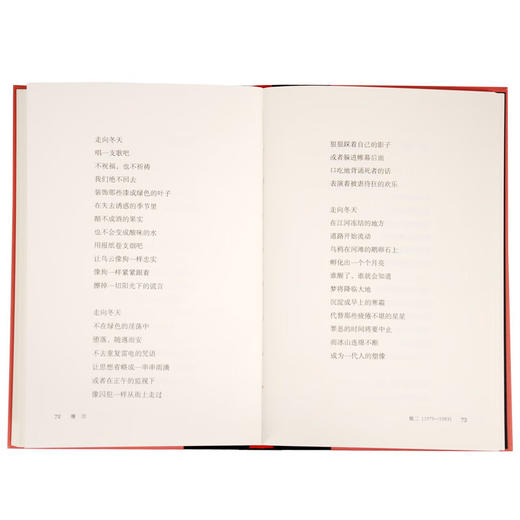 走向冬天
唱一支歌吧
不祝福,也不祈祷
我们绝不回去
装饰那些漆成绿色的叶子
在失去诱惑的季节里
酿不成酒的果实
也不会变成酸味的水
用报纸卷支烟吧
让乌云像狗一样忠实
像狗一样紧紧跟着
擦掉一切阳光下的谎言
走向冬天
不在绿色的淫荡中
堕落,随遇而安
不去重复雷电的咒语
让思想省略成一串串雨滴
或者在正午的监视下
像囚犯一样从街上走过
72
狠狠踩着自己的影子
或者躲进帷幕后面
口吃地背诵死者的话
表演着被虐待狂的欢乐
走向冬天
在江河冻结的地方
道路开始流动
乌鸦在河滩的鹅卵石上
孵化出一个个月亮
谁醒了,谁就会知道
梦将降临大地
沉淀成早上的寒霜
代替那些疲倦不堪的星星
罪恶的时间将要中止
而冰山连绵不断
成为一代人的塑像
辑二 (1979—1983) 73